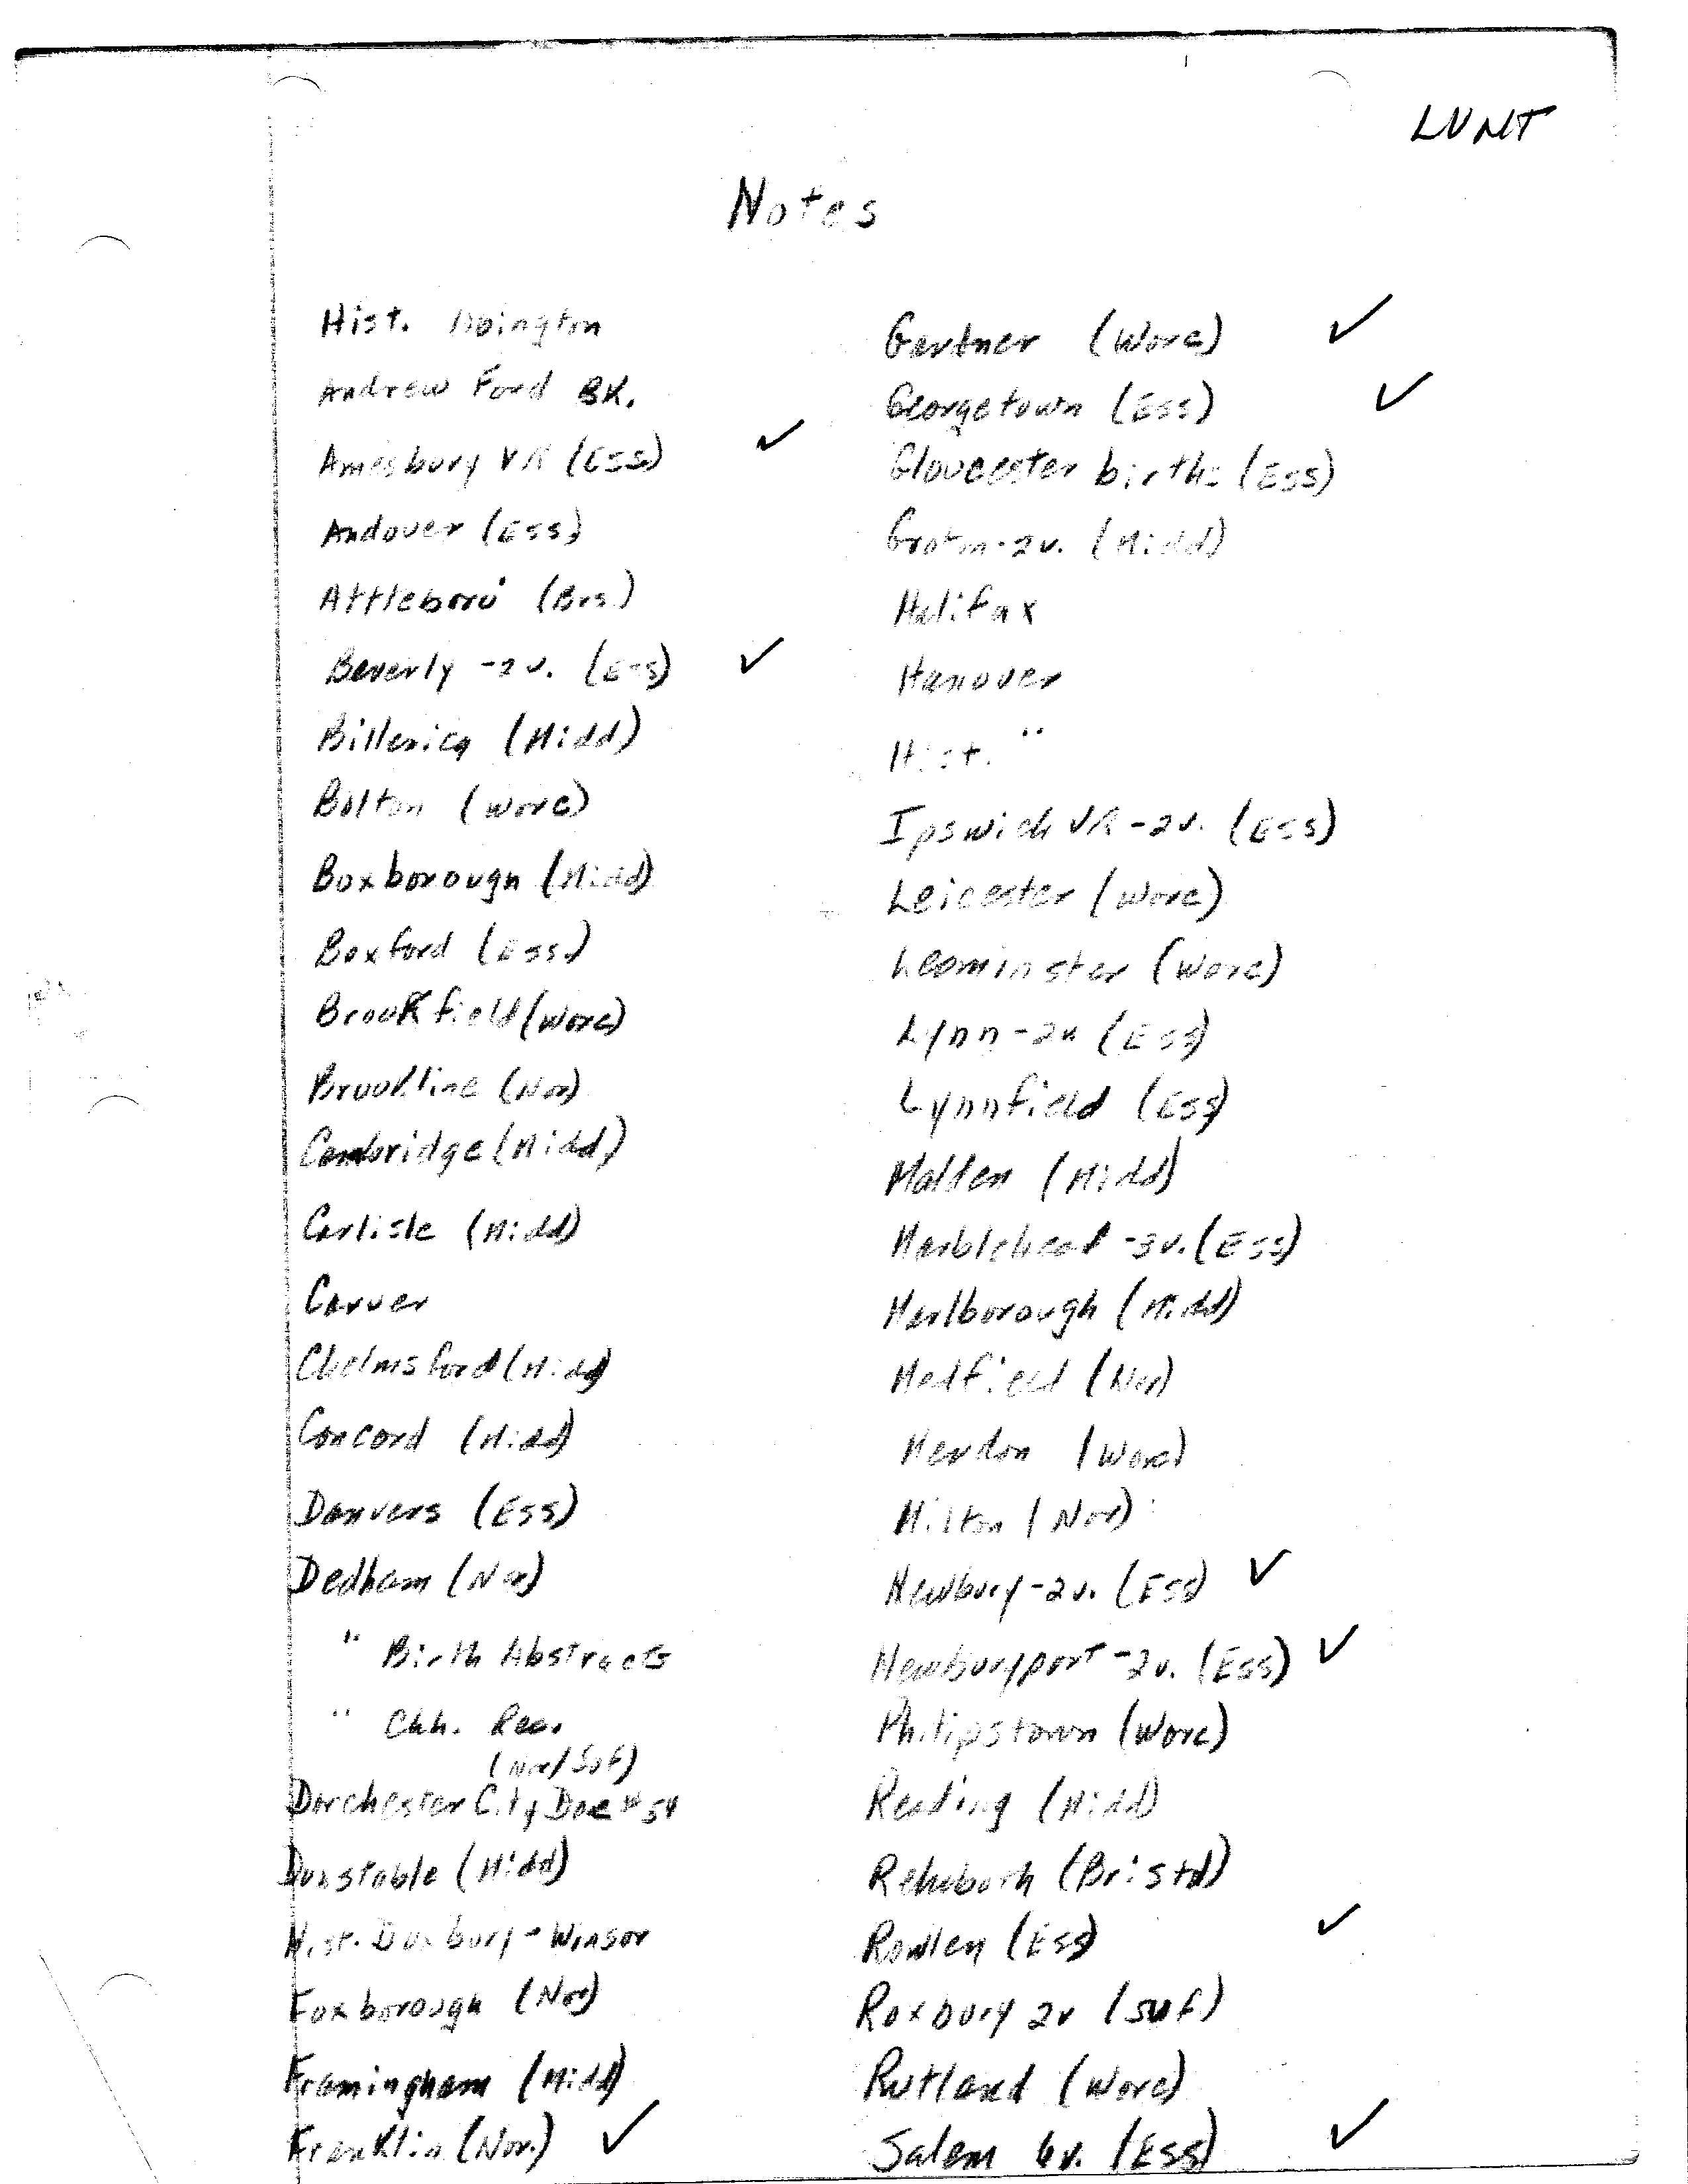 LUNT
Notes
Hist. Abington
Andrew Ford BK.
Amesbury VR (Ess) ✓
Andover (Ess)
Attleboro (Brs)
Beverly -2v. (Ess) ✓
Billerica (Midd)
Bolton (Worc)
Boxborough (Midd)
Boxford (Ess)
Brookfield (Worc)
Brookline (Nor)
Cambridge (Midd)
Carlisle (Midd)
Carver
Chelmsford (Midd)
Concord (Midd)
Danvers (Ess)
Dedham (Nor)
" Birth Abstracts
" Chh. Rec.
(Nor/Suf)
Dorchester City Doc #54
Dunstable (Midd)
Hist. Duxbury - Winsor
Foxborough (Nor)
Framingham (Midd)
Franklin (Nor.) ✓
Gardner (Worc) ✓
Georgetown (Ess) ✓
Gloucester births (Ess)
Groton -2v. (Midd)
Halifax
Hanover
Hist. "
Ipswich VR -2v. (Ess)
Leicester (Worc)
Leominster (Worc)
Lynn -2v (Ess)
Lynnfield (Ess)
Malden (Midd)
Marblehead -3v. (Ess)
Marlborough (Midd)
Medfield (Nor)
Mendon (Worc)
Milton (Nor)
Newbury -2v. (Ess) ✓
Newburyport -2v. (Ess) ✓
Philipstown (Worc)
Reading (Midd)
Rehoboth (Bristol)
Rowley (Ess) ✓
Roxbury 2v (Suf)
Rutland (Worc)
Salem 6v. (Ess) ✓